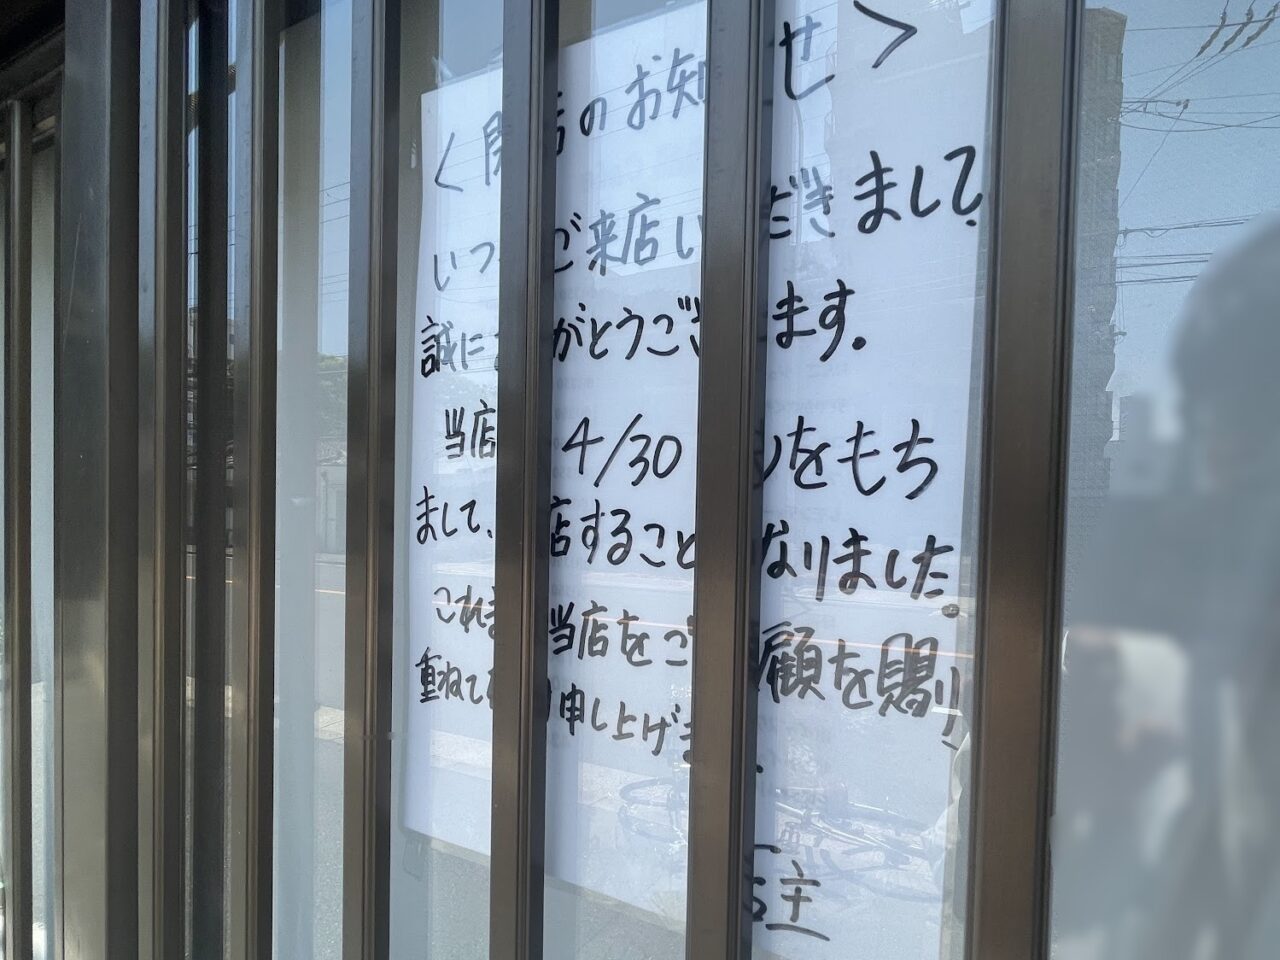 ＜店のお知せ＞
いつご来店いだきまして、
誠にがとうございます。
当店 4/30 をもち
まして、店することなりました。
これま当店をご顧を賜り、
重ねて申し上げま。
店主